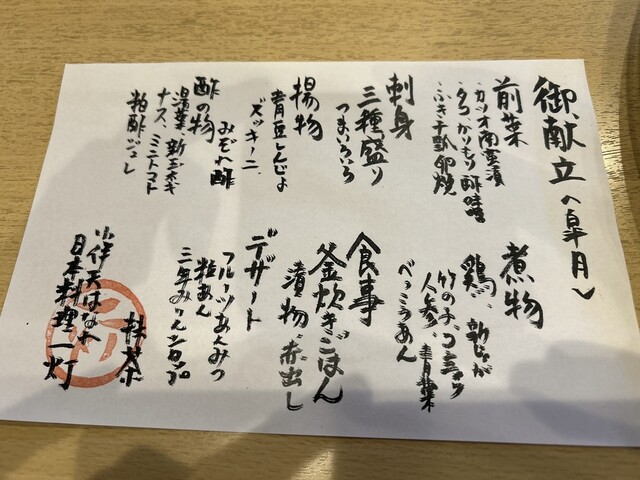 御献立〈皐月〉
前菜
カツオ南蛮漬
タコ、かりもり酢味噌
ふき干瓢卵焼
刺身
三種盛り
つまいろいろ
揚物
青豆しんじょ
ズッキーニ
酢の物
みぞれ酢
湯葉 新玉ネギ
ナス、ミニトマト
粕酢ジュレ
煮物
鶏、新じゃが
竹の子、コンニャク
人参、青葉
べっこうあん
食事
釜炊きごはん
漬物、赤出し
デザート
フルーツあんみつ
粒あん
三年みりんシロップ
抹茶
小伴天はなれ
日本料理一灯